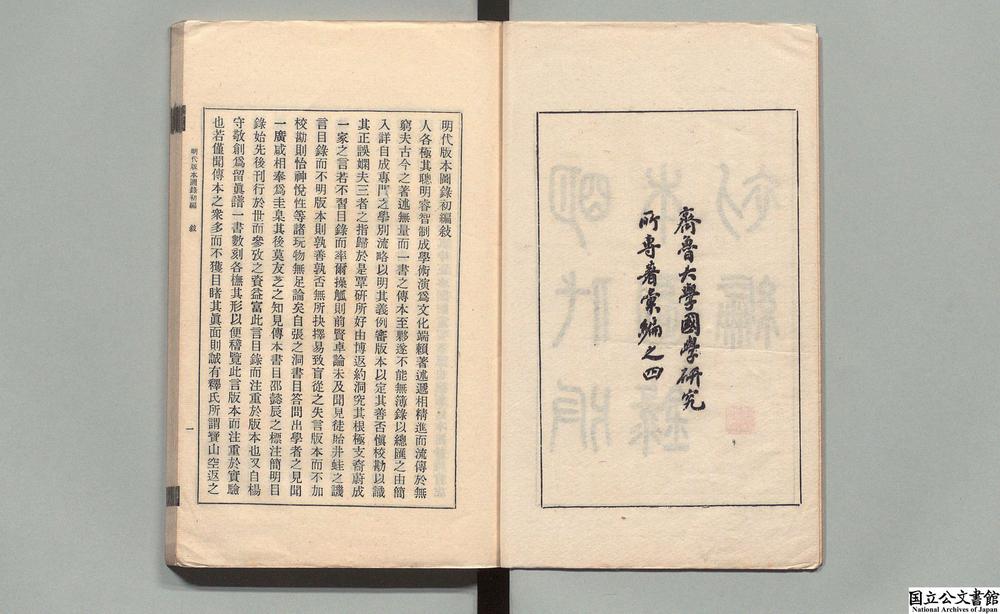 齊魯大學國學研究
所專著彙編之四
明代版本圖錄初編敘
人各極其聰明睿智制成學術演爲文化端賴著述遞相精進而流傳於無
窮夫古今之著述無量而一書之傳本至夥遂不能無簿錄以總匯之由簡
入詳自成專門之學別流略以明其義例審版本以定其善否愼校勘以識
其正誤嫻夫三者之指歸於是覃硏所好由博返約洞究其根極支裔蔚成
一家之言若不習目錄而率爾操觚則前賢卓論未及聞見徒貽井蛙之譏
言目錄而不明版本則孰善孰否無所抉擇易致盲從之失言版本而不加
校勘則怡神悅性等諸玩物無足論矣自張之洞書目答問出學者之見聞
一廣咸相奉爲圭臬其後莫友芝之知見傳本書目邵懿辰之標注簡明目
錄始先後刊行於世而參攷之資益富此言目錄而注重於版本也叉自楊
守敬創爲留眞譜一書數刻各橅其形以便稽覽此言版本而注重於實驗
也若僅聞傳本之衆多而不獲目睹其眞面則誠有釋氏所謂寶山空返之
明代版本圖錄初編 敘
一
国立公文書館
National Archives of Japan